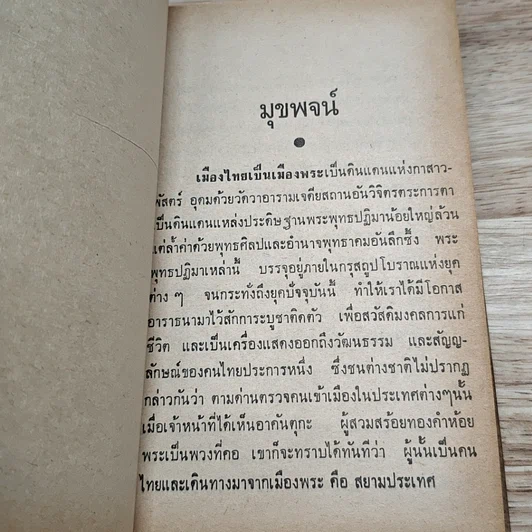 มุขพจน์
เมืองไทยเป็นเมืองพระเป็นดินแดนแห่งกาสาว-
พัสตร์ อุดมด้วยวัดวาอารามเจดียสถานอันวิจิตรตระการตา
เป็นดินแดนแหล่งประดิษฐานพระพุทธปฏิมาน้อยใหญ่ล้วน
แต่ล้ำค่าด้วยพุทธศิลปและอำนาจพุทธาคมอันลึกซึ้ง พระ
พุทธปฏิมาเหล่านี้ บรรจุอยู่ภายในกรุสถูปโบราณแห่งยุค
ต่าง ๆ จนกระทั่งถึงยุคปัจจุบันนี้ ทำให้เราได้มีโอกาส
อาราธนามาไว้สักการะบูชาติดตัว เพื่อสวัสดิมงคลการแก่
ชีวิต และเป็นเครื่องแสดงออกถึงวัฒนธรรม และสัญญ-
ลักษณ์ของคนไทยประการหนึ่ง ซึ่งชนต่างชาติไม่ปรากฏ
กล่าวกันว่า ตามด่านตรวจคนเข้าเมืองในประเทศต่างๆนั้น
เมื่อเจ้าหน้าที่ได้เห็นอาคันตุกะ ผู้สวมสร้อยทองคำห้อย
พระเป็นพวงที่คอ เขาก็จะทราบได้ทันทีว่า ผู้นั้นเป็นคน
ไทยและเดินทางมาจากเมืองพระ คือ สยามประเทศ